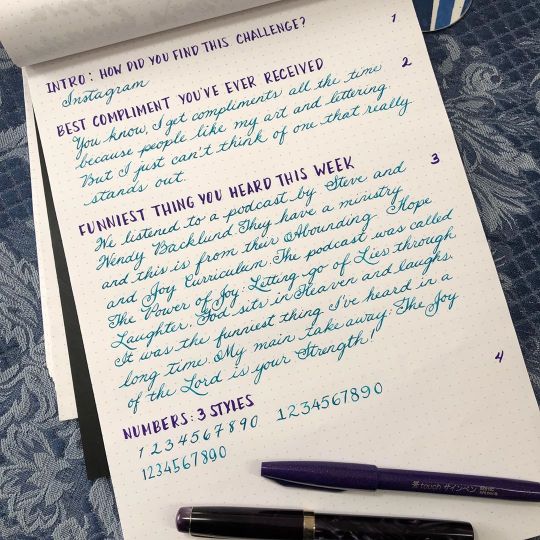 INTRO: HOW DID YOU FIND THIS CHALLENGE? 1
Instagram
BEST COMPLIMENT YOU'VE EVER RECEIVED 2
You know, I get compliments all the time
because people like my art and lettering.
But I just can't think of one that really
stands out.
FUNNIEST THING YOU HEARD THIS WEEK 3
We listened to a podcast by Steve and
Wendy Backlund. They have a ministry
and this is from their Abounding Hope
and Joy Curriculum. The podcast was called
The Power of Joy: Letting go of Lies through
Laughter. God sits in Heaven and laughs.
It was the funniest thing I've heard in a
long time. My main take away: The Joy
of the Lord is your Strength!
NUMBERS: 3 STYLES 4
1 2 3 4 5 6 7 8 9 0 1234567890
1234567890
touch サインペン